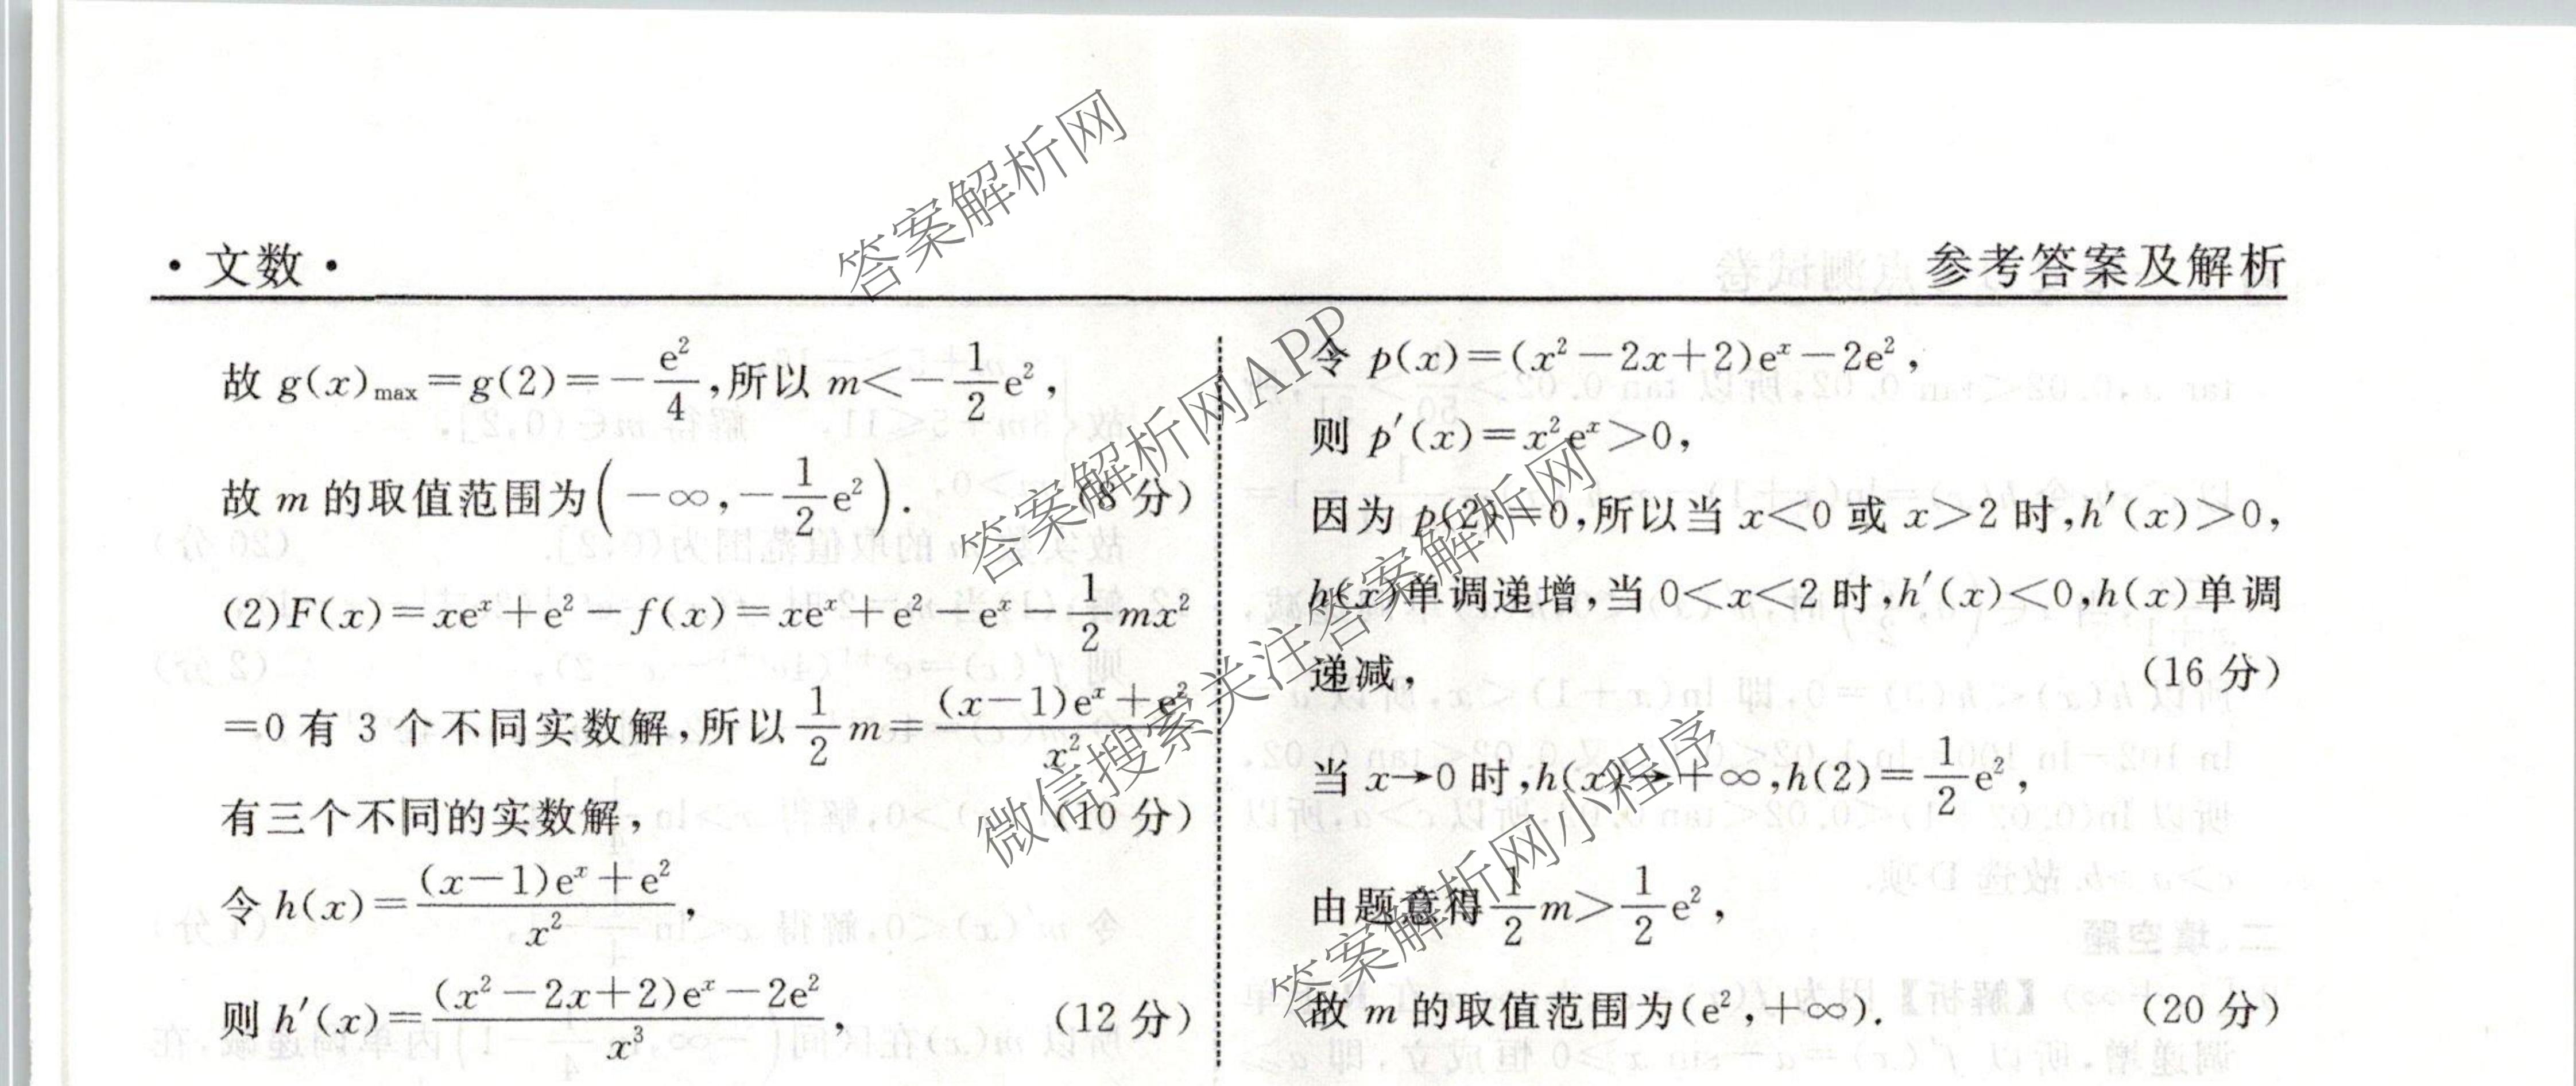 ·文数·
参考答案及解析
故 g(x)max=g(2)=-e²/4,所以 m<-1/2e²,
故 m 的取值范围为(-∞,-1/2e²). (8 分)
(2)F(x)=xeˣ+e²-f(x)=xeˣ+e²-eˣ-1/2mx²
=0 有 3 个不同实数解,所以1/2m=((x-1)eˣ+e²)/x²
有三个不同的实数解, (10 分)
令 h(x)=((x-1)eˣ+e²)/x²,
则 h′(x)=((x²-2x+2)eˣ-2e²)/x³, (12 分)
令 p(x)=(x²-2x+2)eˣ-2e²,
则 p′(x)=x²eˣ>0,
因为 p(2)=0,所以当 x<0 或 x>2 时,h′(x)>0,
h(x)单调递增,当 0<x<2 时,h′(x)<0,h(x)单调
递减, (16 分)
当 x→0 时,h(x)→+∞,h(2)=1/2e²,
由题意得1/2m>1/2e²,
故 m 的取值范围为(e²,+∞). (20 分)
答案解析网
答案解析网APP
微信搜索关注答案解析网
答案解析网小程序